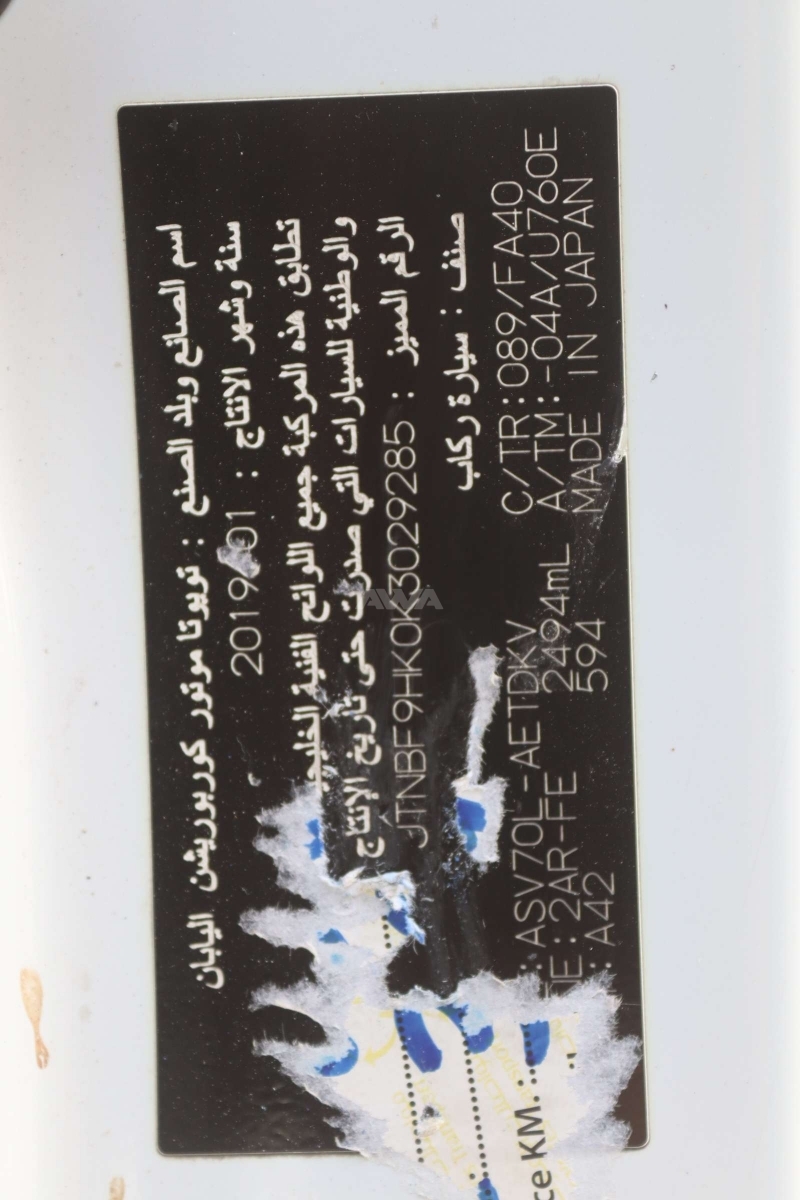 اسم الصانع وبلد الصنع : تويوتا موتور كوربوريشن اليابان
سنة وشهر الانتاج : 2019/01
تطابق هذه المركبة جميع اللوائح الفنية الخليجي
والوطنية للسيارات التي صدرت حتى تاريخ الإنتاج
الرقم المميز : JTNBF9HK0K3029285
صنف : سيارة ركاب
: ASV70L-AETDKV C/TR:089/FA40
DE: 2AR-FE 2494mL A/TM:-04A/U760E
: A42 594 MADE IN JAPAN
ce KM. :
AWA